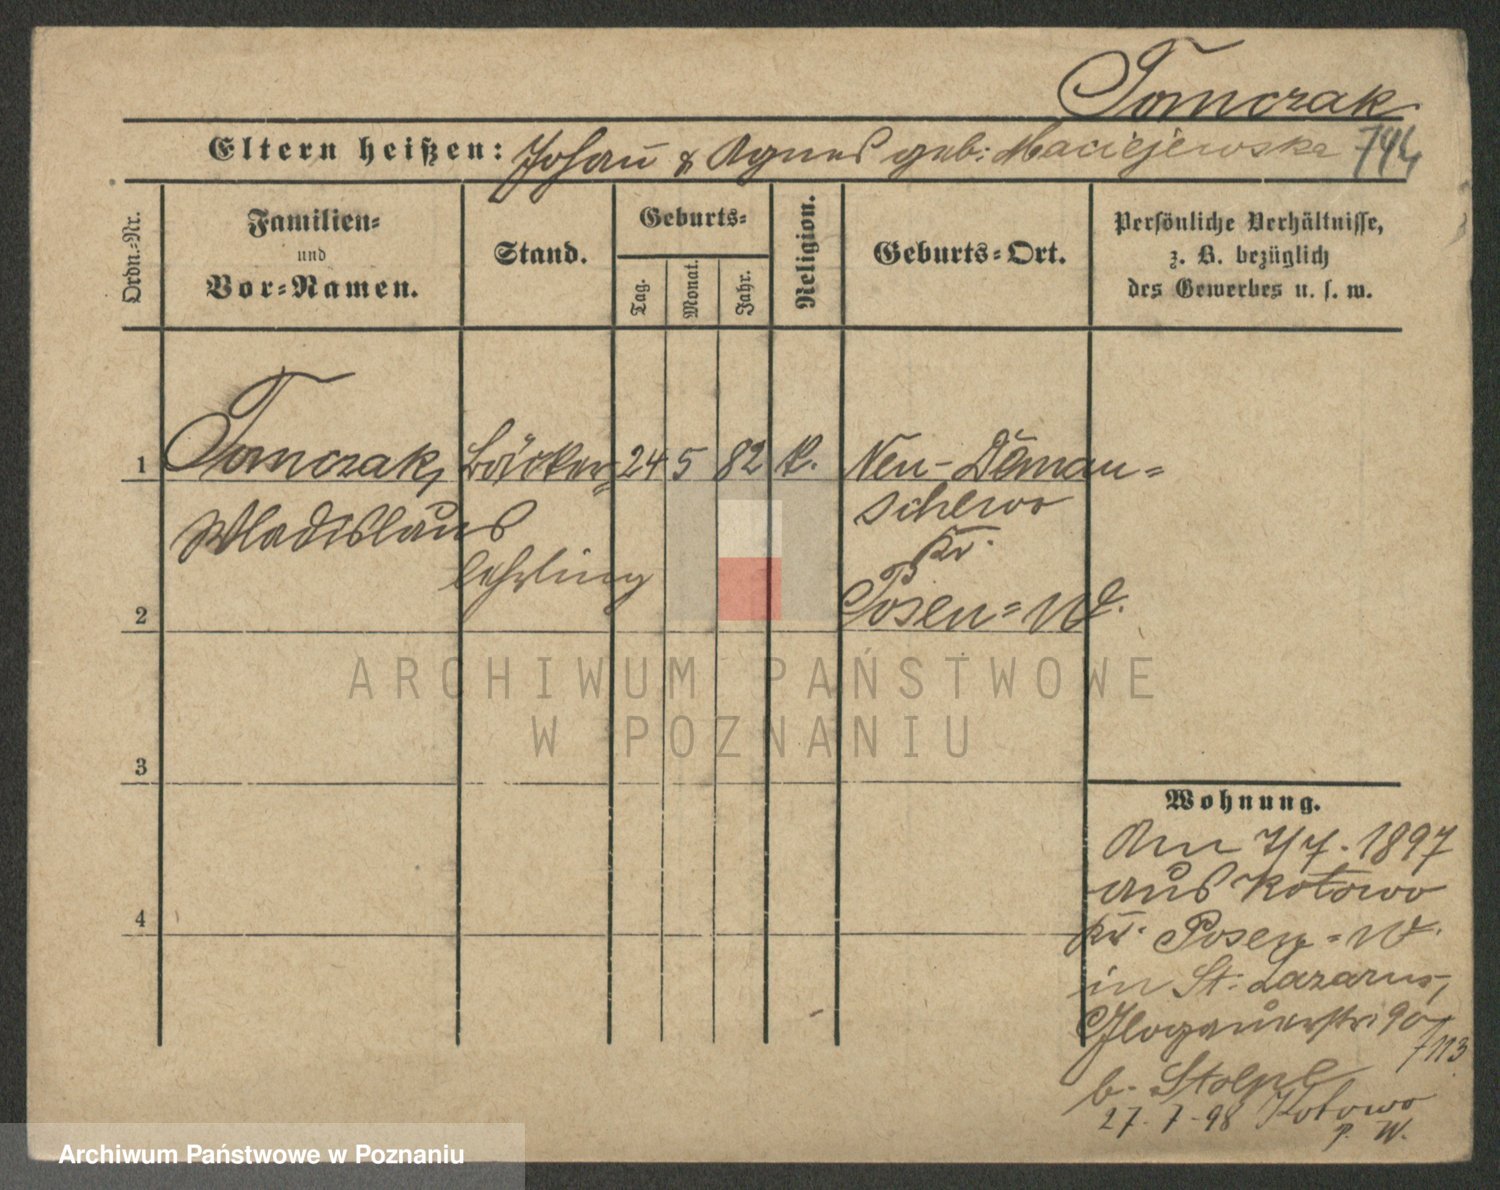 Tomczak
Eltern heißen: Johan̄ & Agnes geb: Maciejewska 744
Ordn.-Nr.
Familien-
und
Vor-Namen.
Stand.
Geburts-
Tag.
Monat.
Jahr.
Religion.
Geburts-Ort.
Persönliche Verhältnisse,
z. B. bezüglich
des Gewerbes u. s. w.
1 Tomczak, Bäcker= 24 5 82 k. Neu-Deman=
Wladislaus schewo
lehrling Kr.
2 Posen=W.
ARCHIWUM PAŃSTWOWE
W POZNANIU
3
Wohnung.
Am 7/7. 1897
aus Kotowo
4
Kr. Posen=W.
in St. Lazarus,
Glogauerstr. 90
/113
b.
27. 7. 98 Kotowo
P. W.
Archiwum Państwowe w Poznaniu